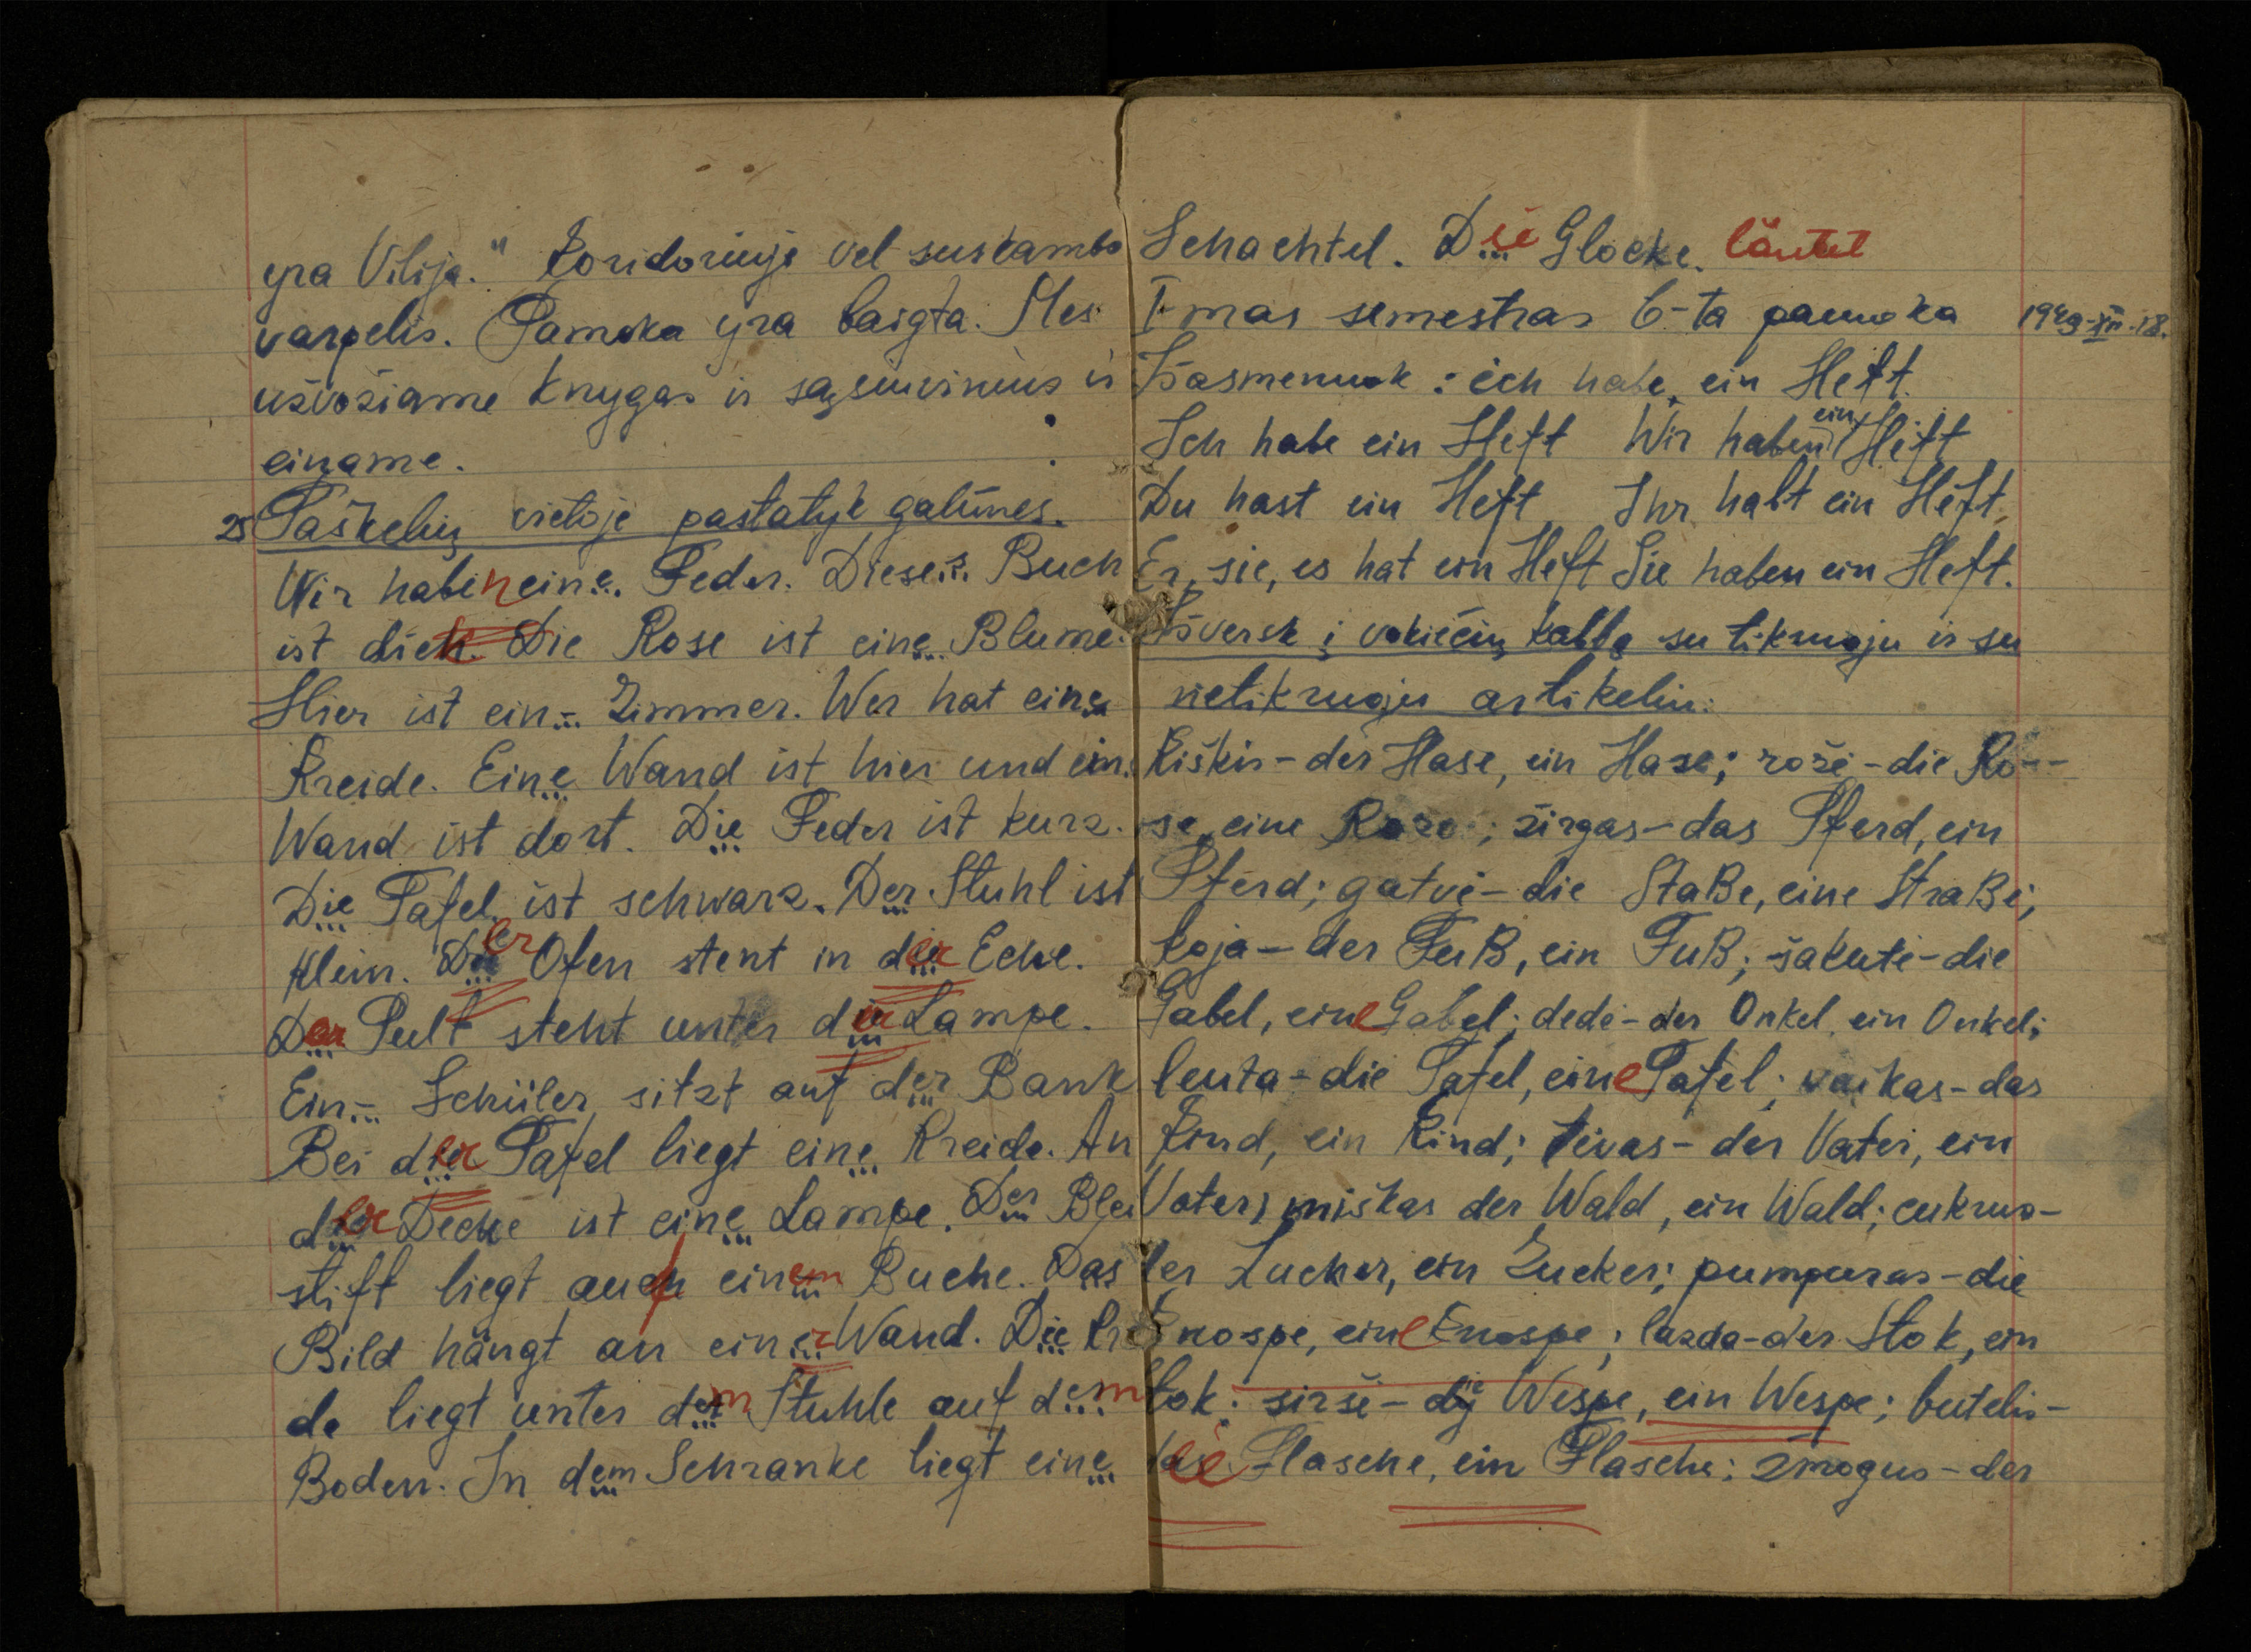 yra Vilija." Koridoriuje vėl suskambo
varpelis. Pamoka yra baigta. Mes
užvožiame knygas ir sąsiuvinius ir
einame.
2) Taškelių vietoje pastatyk galūnes.
Wir haben eine Feder. Dieses Buch
ist dick. Die Rose ist eine Blume.
Hier ist ein- Zimmer. Wer hat eine
Kreide. Eine Wand ist hier und ein.
Wand ist dort. Die Feder ist kurz.
Die Tafel ist schwarz. Der Stuhl ist
klein. Der Ofen steht in der Ecke.
Der Pult steht unter der Lampe.
Ein- Schüler sitzt auf der Bank
Bei der Tafel liegt eine Kreide. An
der Decke ist eine Lampe. Der Blei
stift liegt auf einem Buche. Das
Bild hängt an einer Wand. Die Kre
de liegt unter dem Stuhle auf dem
Boden. In dem Schranke liegt eine
Schachtel. Die Glocke. läutet
I-mas semestras 6-ta pamoka 1949-XII-18.
Išasmenuok: ich habe ein Heft.
Ich habe ein Heft Wir haben ein Heft
Du hast ein Heft Ihr habt ein Heft
Er, sie, es hat ein Heft Sie haben ein Heft.
Išversk į vokiečių kalbą su tikruoju ir su
netikruoju artikeliu.
Kiškis - der Hase, ein Hase; rožė - die Ro-
se, eine Rose; žirgas - das Pferd, ein
Pferd; gatvė - die Staße, eine Straße;
koja - der Fuß, ein Fuß; šakutė - die
Gabel, eine Gabel; dėdė - der Onkel, ein Onkel;
lenta - die Tafel, eine Tafel; vaikas - das
Kind, ein Kind; tėvas - der Vater, ein
Vater; miškas der Wald, ein Wald; cukrus -
der Zucker, ein Zucker; pumpuras - die
Knospe, eine Knospe; lazda - der Stok, ein
Stok; širšė - die Wespe, ein Wespe; butelis -
die Flasche, ein Flasche; žmogus - der